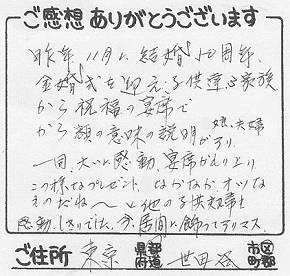 ご感想ありがとうございます
昨年11月に結婚50周年、
金婚式を迎え子供達家族
から祝福の宴席で
から額の意味の説明があり
娘夫婦
一同、大いに感動、宴席がもり上り
この様なプレゼント、なかなかオツな
ものだね〜と他の子供夫婦も
感動しきりでした。今、居間に飾ってマス
ご住所 東京 都道府県 世田谷 市区町郡